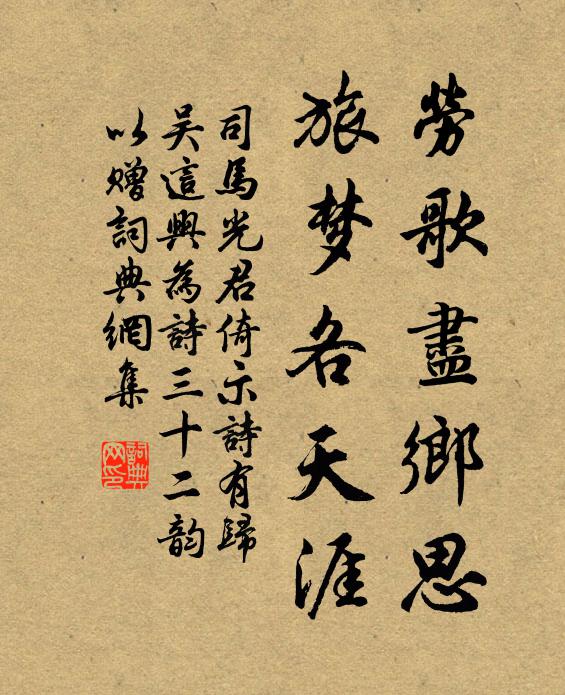 勞歌盡鄉思
旅梦各天涯
司馬光君倚示詩有歸
吴這興為詩三十二韵
以贈詞典網集
詞典网印